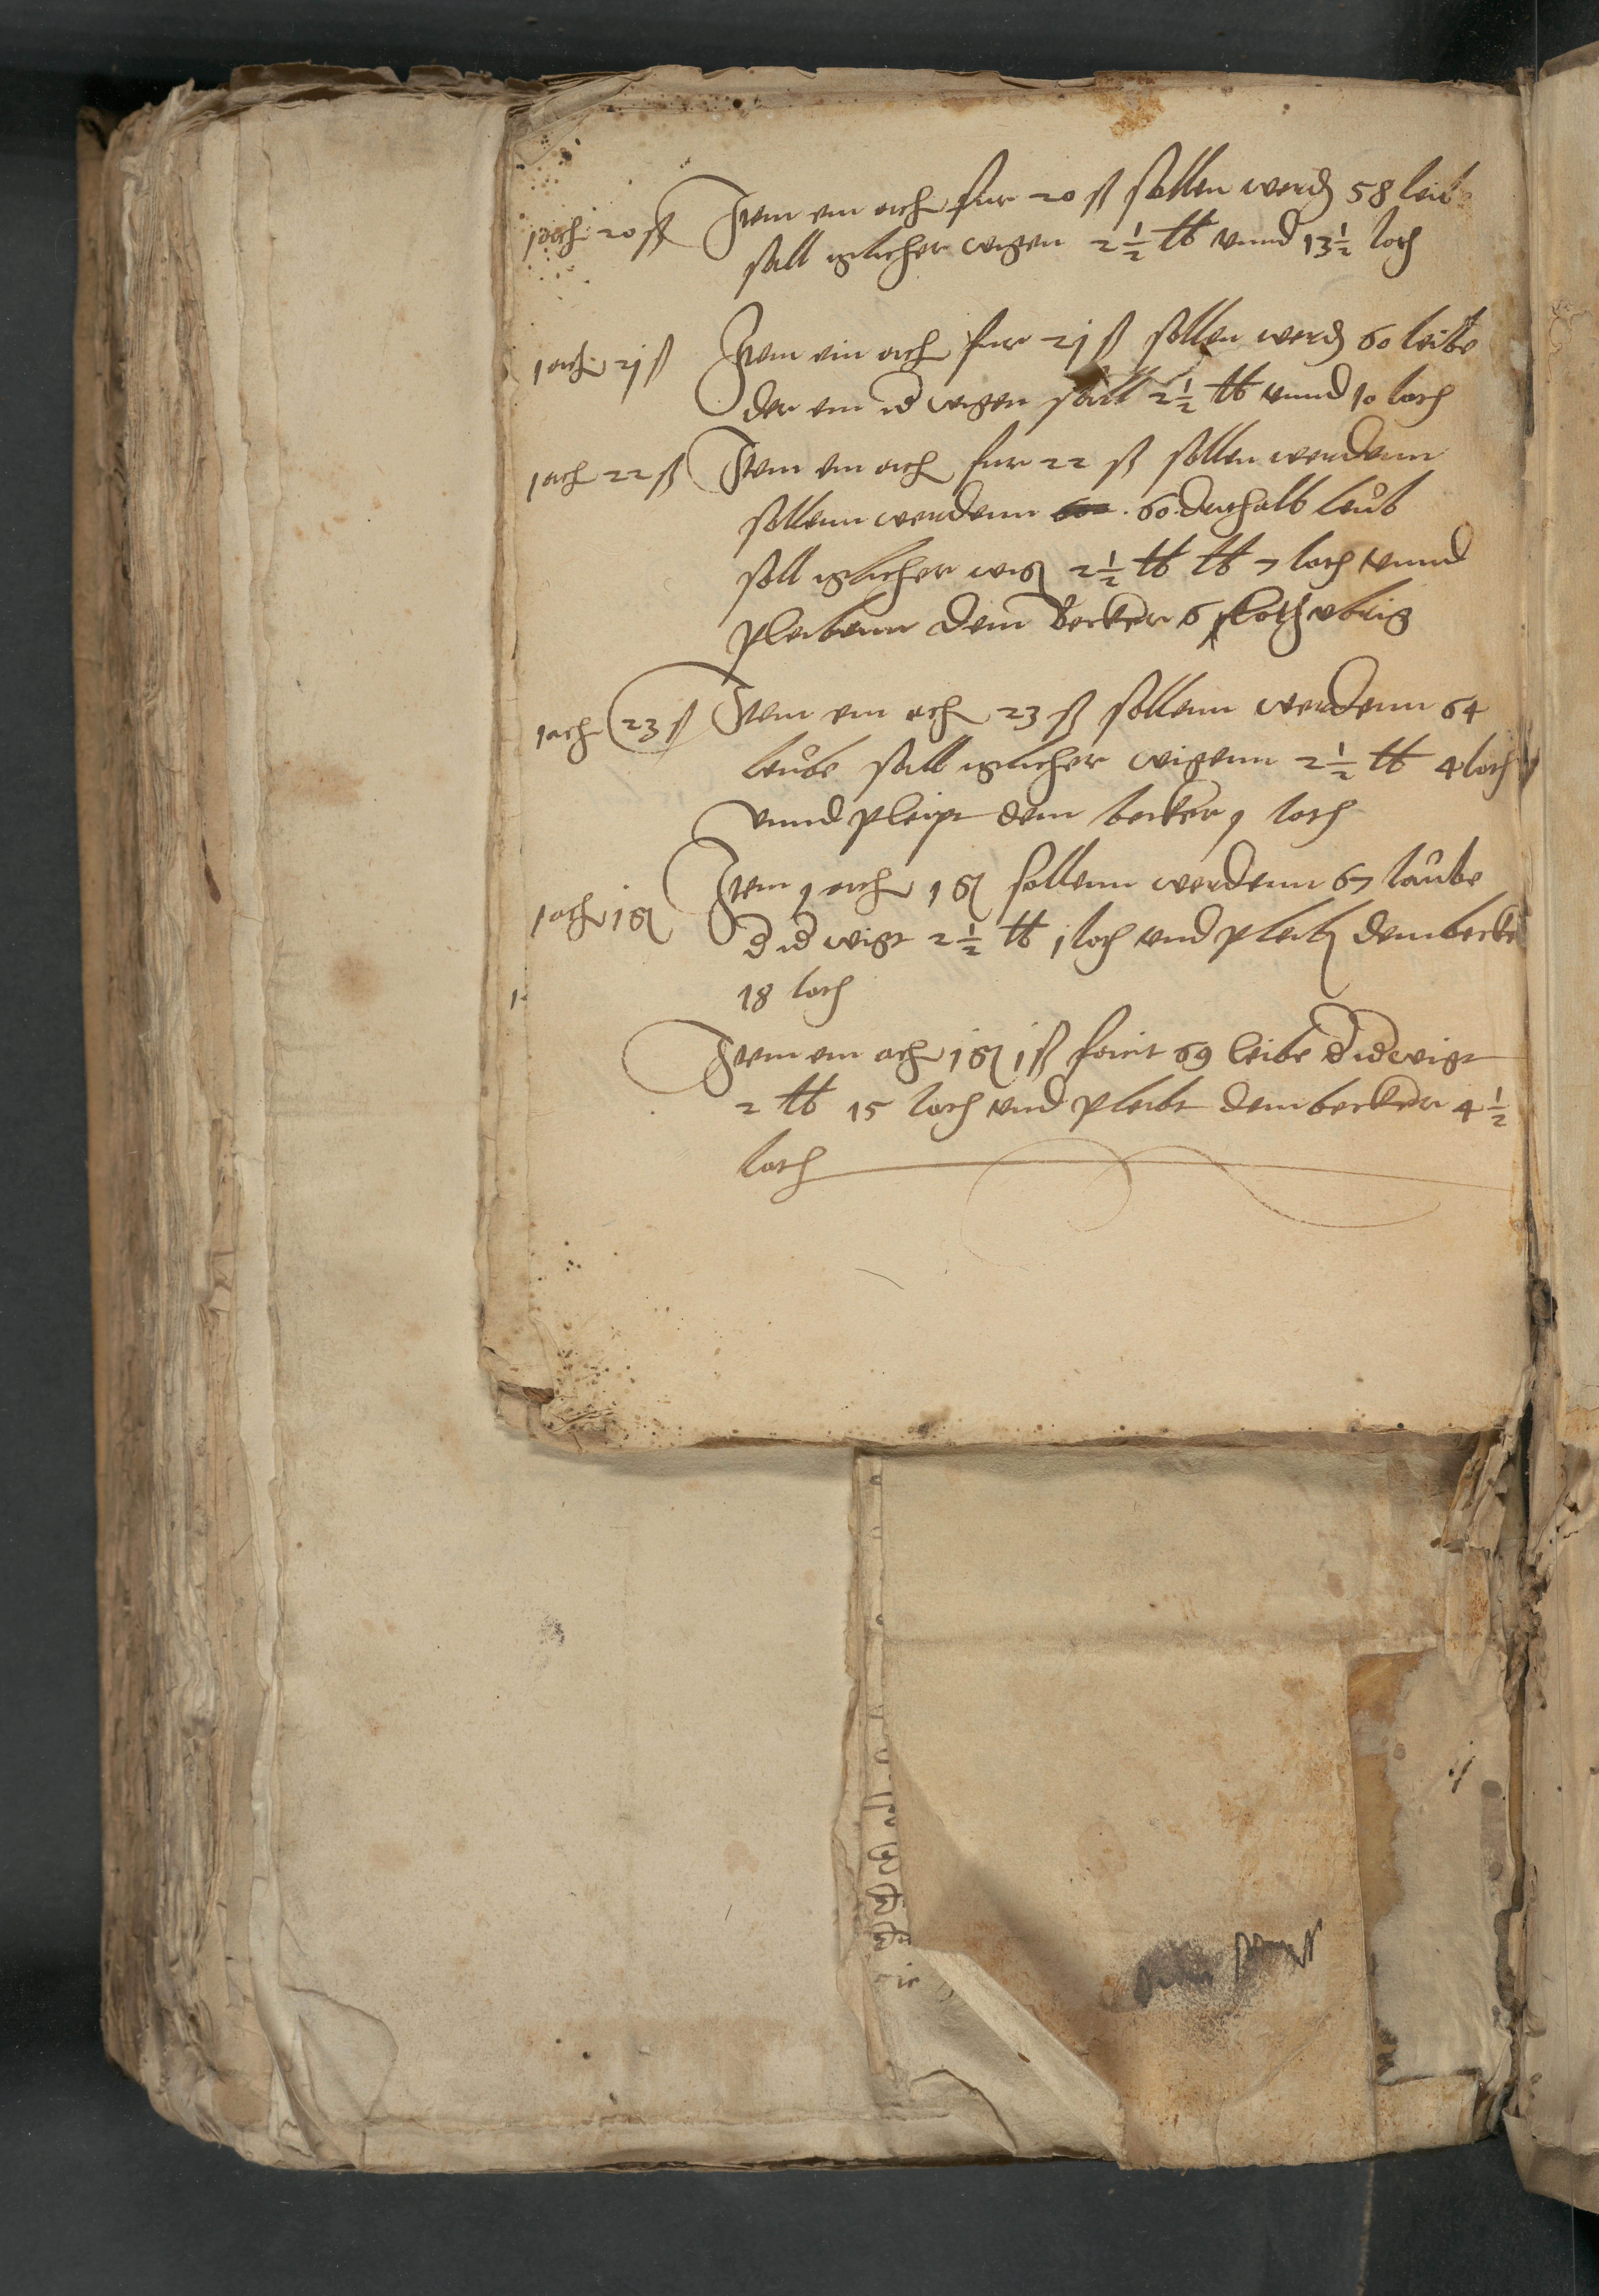 1 och 20 ß Item ein och fur 20 ß sollen werd 58 leib
sall iglicher wigen 2 ½ ℔ vnnd 13 ½ loth
1 och 21 ß Item ein och fur 21 ß sollen werd 60 leibe
der ein id wigen sall 2 ½ ℔ vnnd 10 loth
1 och 22 ß Item ein och fur 22 ß sollen werdenn
sollenn werdenn 60 leib
soll iglicher wig 2 ½ ℔ ℔ 7 loth vnnd
pleibenn dem Becker 6 loth vbrig
1 och 23 ß Item ein och 23 ß sollenn werdenn 64
leibe sall iglicher wigenn 2 ½ ℔ 4 loth
vnnd pleipt dem becker 1 loth
1 och 1 gl Item 1 och 1 gl sollenn werdenn 67 laibe
d id wigt 2 ½ ℔ 1 loth vnd pleib dem becke
18 loth
Item ein och 1 gl 1 ß feint 69 leibe d id wigt
2 ℔ 15 loth vnd pleibt dem becker 4 ½
loth